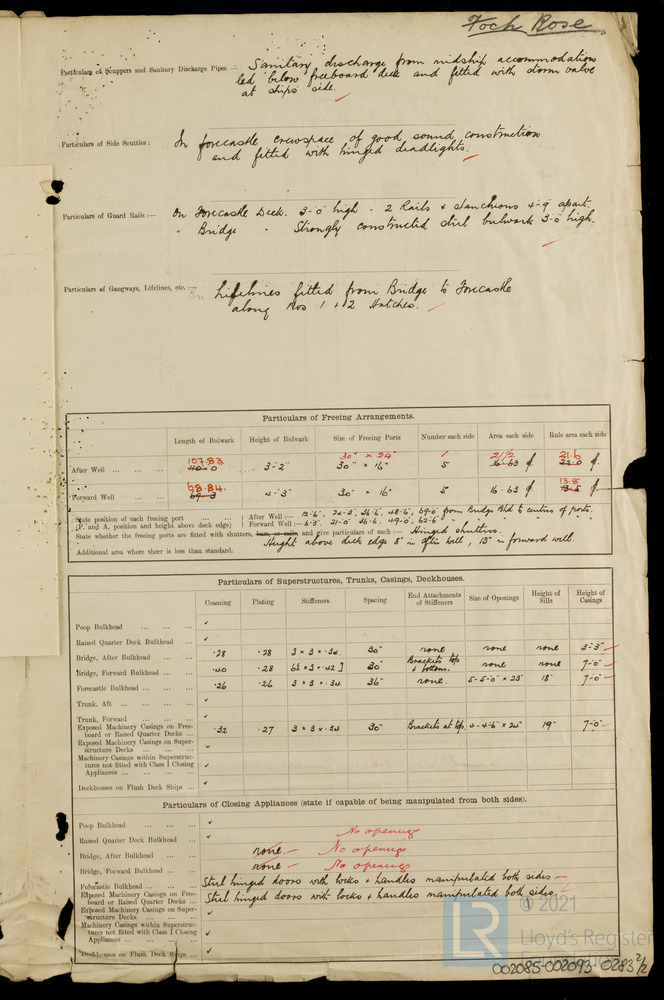 Foch Rose
Particulars of Scuppers and Sanitary Discharge Pipes :— Sanitary discharge from midship accommodation
led below freeboard deck and fitted with storm valve
at ship's side.
Particulars of Side Scuttles : In forecastle crewspace of good sound construction
and fitted with hinged deadlights.
Particulars of Guard Rails :— On Forecastle Deck. 3'-0" high - 2 Rails & stanchions 4'-9" apart.
" Bridge " Strongly constructed steel bulwark 3'-0" high.
Particulars of Gangways, Lifelines, etc. :— Lifelines fitted from Bridge to Forecastle
along Nos 1 + 2 Hatches.
Particulars of Freeing Arrangements.
Length of Bulwark Height of Bulwark Size of Freeing Ports Number each side Area each side Rule area each side
107.83 30" x 24" 1 21½ 21.6
After Well ... ... ... 110-0 3'-2" 30" x 16" 5 16.63 f. 22.0 f.
68.84. 13.8
Forward Well ... ... 69-3 4'-3" 30" x 16" 5 16.63 f. 13.5 f.
State position of each freeing port ... ... ... After Well :— 12'-6", 24'-3", 36'-6", 48'-6", 69'-0 from Bridge Bhd to centres of ports.
(F. and A. position and height above deck edge) Forward Well :— 6'-3" 21'-0" 36'-6. 49'-0", 62'-6"
State whether the freeing ports are fitted with shutters, bars, or rails, and give particulars of such :— Hinged shutters.
Height above deck edge 8" in after well, 13" in forward well.
Additional area where sheer is less than standard.
Particulars of Superstructures, Trunks, Casings, Deckhouses.
Coaming Plating Stiffeners Spacing End Attachments of Stiffeners Size of Openings Height of Sills Height of Casings
Poop Bulkhead ... ... ...
Raised Quarter Deck Bulkhead ...
Bridge, After Bulkhead ... ... .28 .28 3 x 3 x .34 30" none none none 3'-3"
Bridge, Forward Bulkhead ... ... .40 .28 6½ x 3 x .42 ] 30" Brackets top + bottom. none none 7'-0"
Forecastle Bulkhead ... ... ... .26 .26 3 x 3 x .34 36" none. 5-5'-0" x 23" 18" 7'-0"
Trunk, Aft ... ... ... ...
Trunk, Forward ... ... ...
Exposed Machinery Casings on Free-
board or Raised Quarter Decks ... .32 .27 3 x 3 x .34 30" Brackets at top. 4-4'-6" x 24" 19" 7'-0"
Exposed Machinery Casings on Super-
structure Decks ... ... ...
Machinery Casings within Superstruc-
tures not fitted with Class I Closing
Appliances ... ... ... ...
Deckhouses on Flush Deck Ships ...
Particulars of Closing Appliances (state if capable of being manipulated from both sides).
Poop Bulkhead ... ... ...
Raised Quarter Deck Bulkhead ... No openings
Bridge, After Bulkhead ... ... none. — No openings
Bridge, Forward Bulkhead ... ... none — No openings
Forecastle Bulkhead ... ... ... Steel hinged doors with locks + handles manipulated both sides —
Exposed Machinery Casings on Free-
board or Raised Quarter Decks ... Steel hinged doors with locks + handles manipulated both sides.
Exposed Machinery Casings on Super-
structure Decks ... ... ...
Machinery Casings within Superstruc-
tures not fitted with Class I Closing
Appliances ... ... ... ...
Deckhouses on Flush Deck Ships ...
LR © 2021
Lloyd's Register
Foundation
002085-002093-0283 2/2